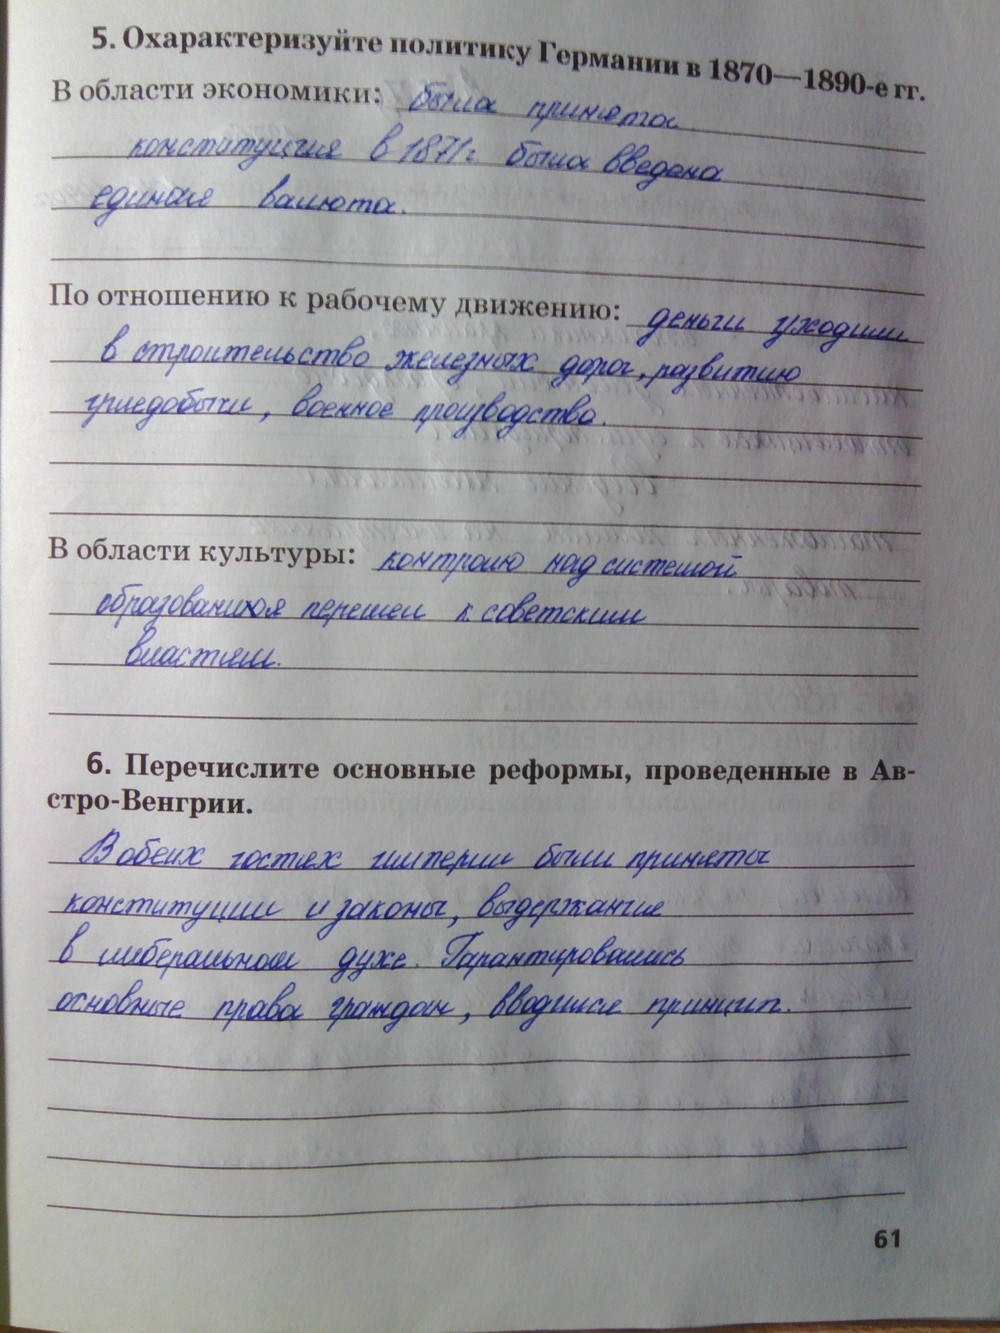 5. Охарактеризуйте политику Германии в 1870—1890-е гг.
В области экономики: была принята
конституция в 1871г. была введена
единая валюта.
По отношению к рабочему движению: деньги уходили
в строительство железных дорог, развитию
угледобычи, военное производство.
В области культуры: контроль над системой
образования перешел к советским
властям.
6. Перечислите основные реформы, проведенные в Ав-
стро-Венгрии.
В обеих частях империи были приняты
конституции и законы, выдержание
в либеральном духе. Гарантировались
основные права граждан, вводился принцип.
61